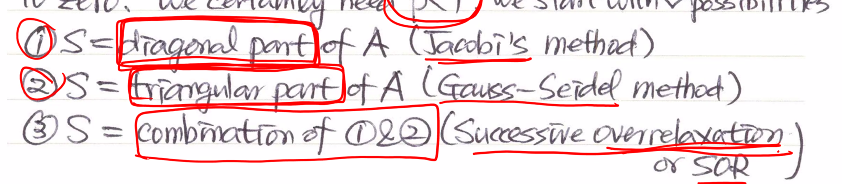 to zero. We certainly need ρ<1, we start with possibilities
① S = diagonal part of A (Jacobi's method)
② S = triangular part of A (Gauss-Seidel method)
③ S = combination of ① & ② (Successive overrelaxation
or SOR)